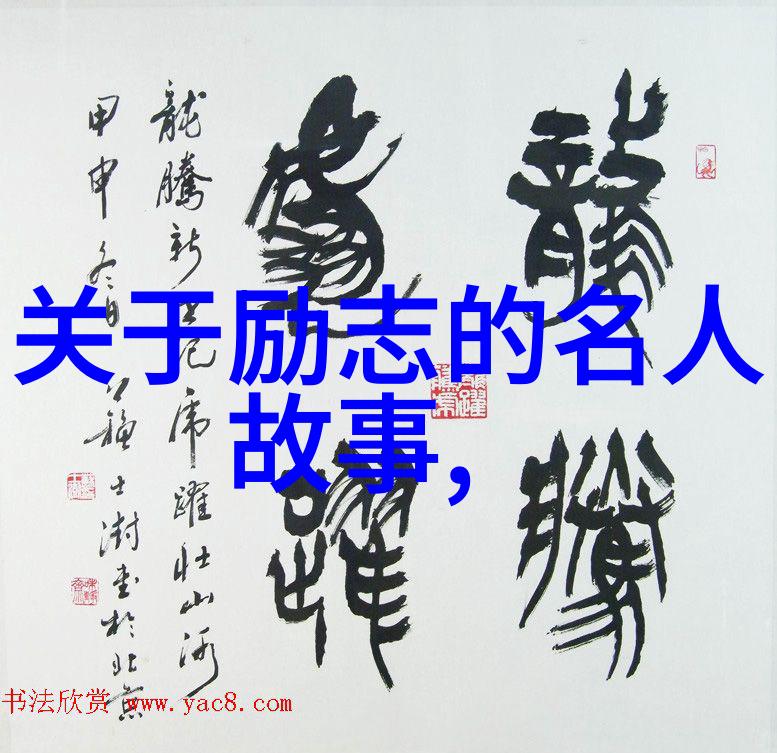 龍騰
虎躍
龍騰新世紀虎躍壯山河
甲申冬日蘇士澍書於北京
关于励志的名人
故事,
书法欣赏 www.yac8.com